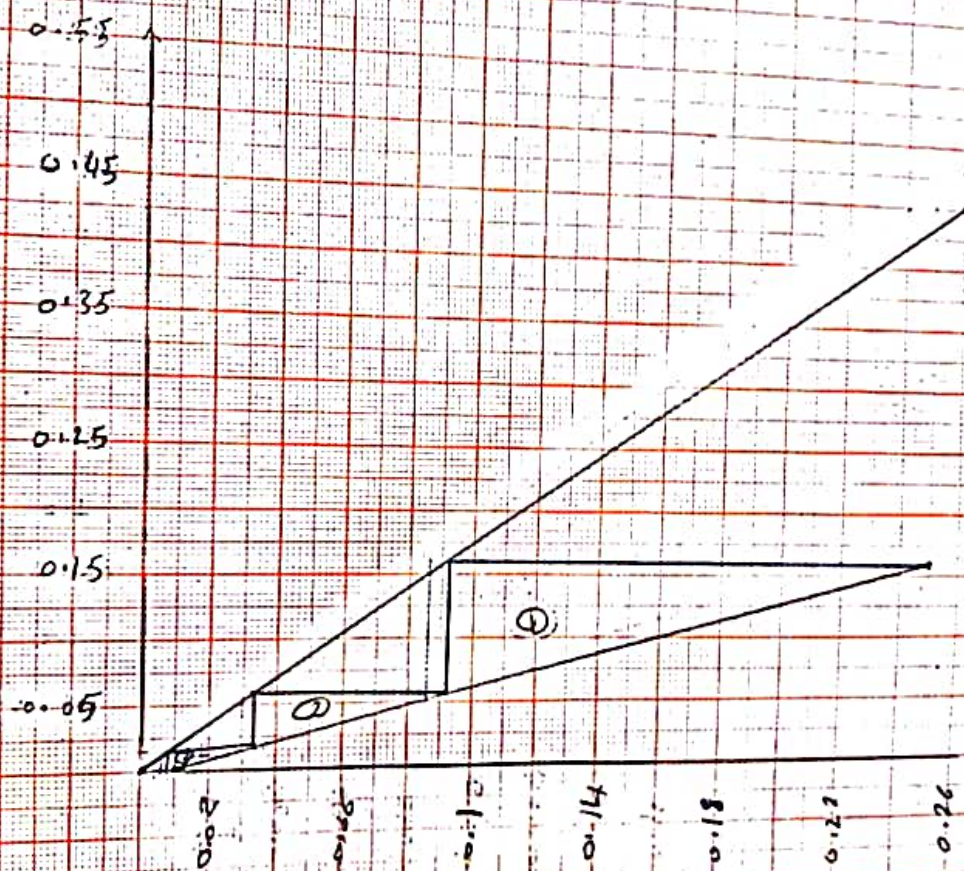 0.55
0.45
0.35
0.25
0.15
0.05
①
0.02
0.06
0.10
0.14
0.18
0.22
0.26